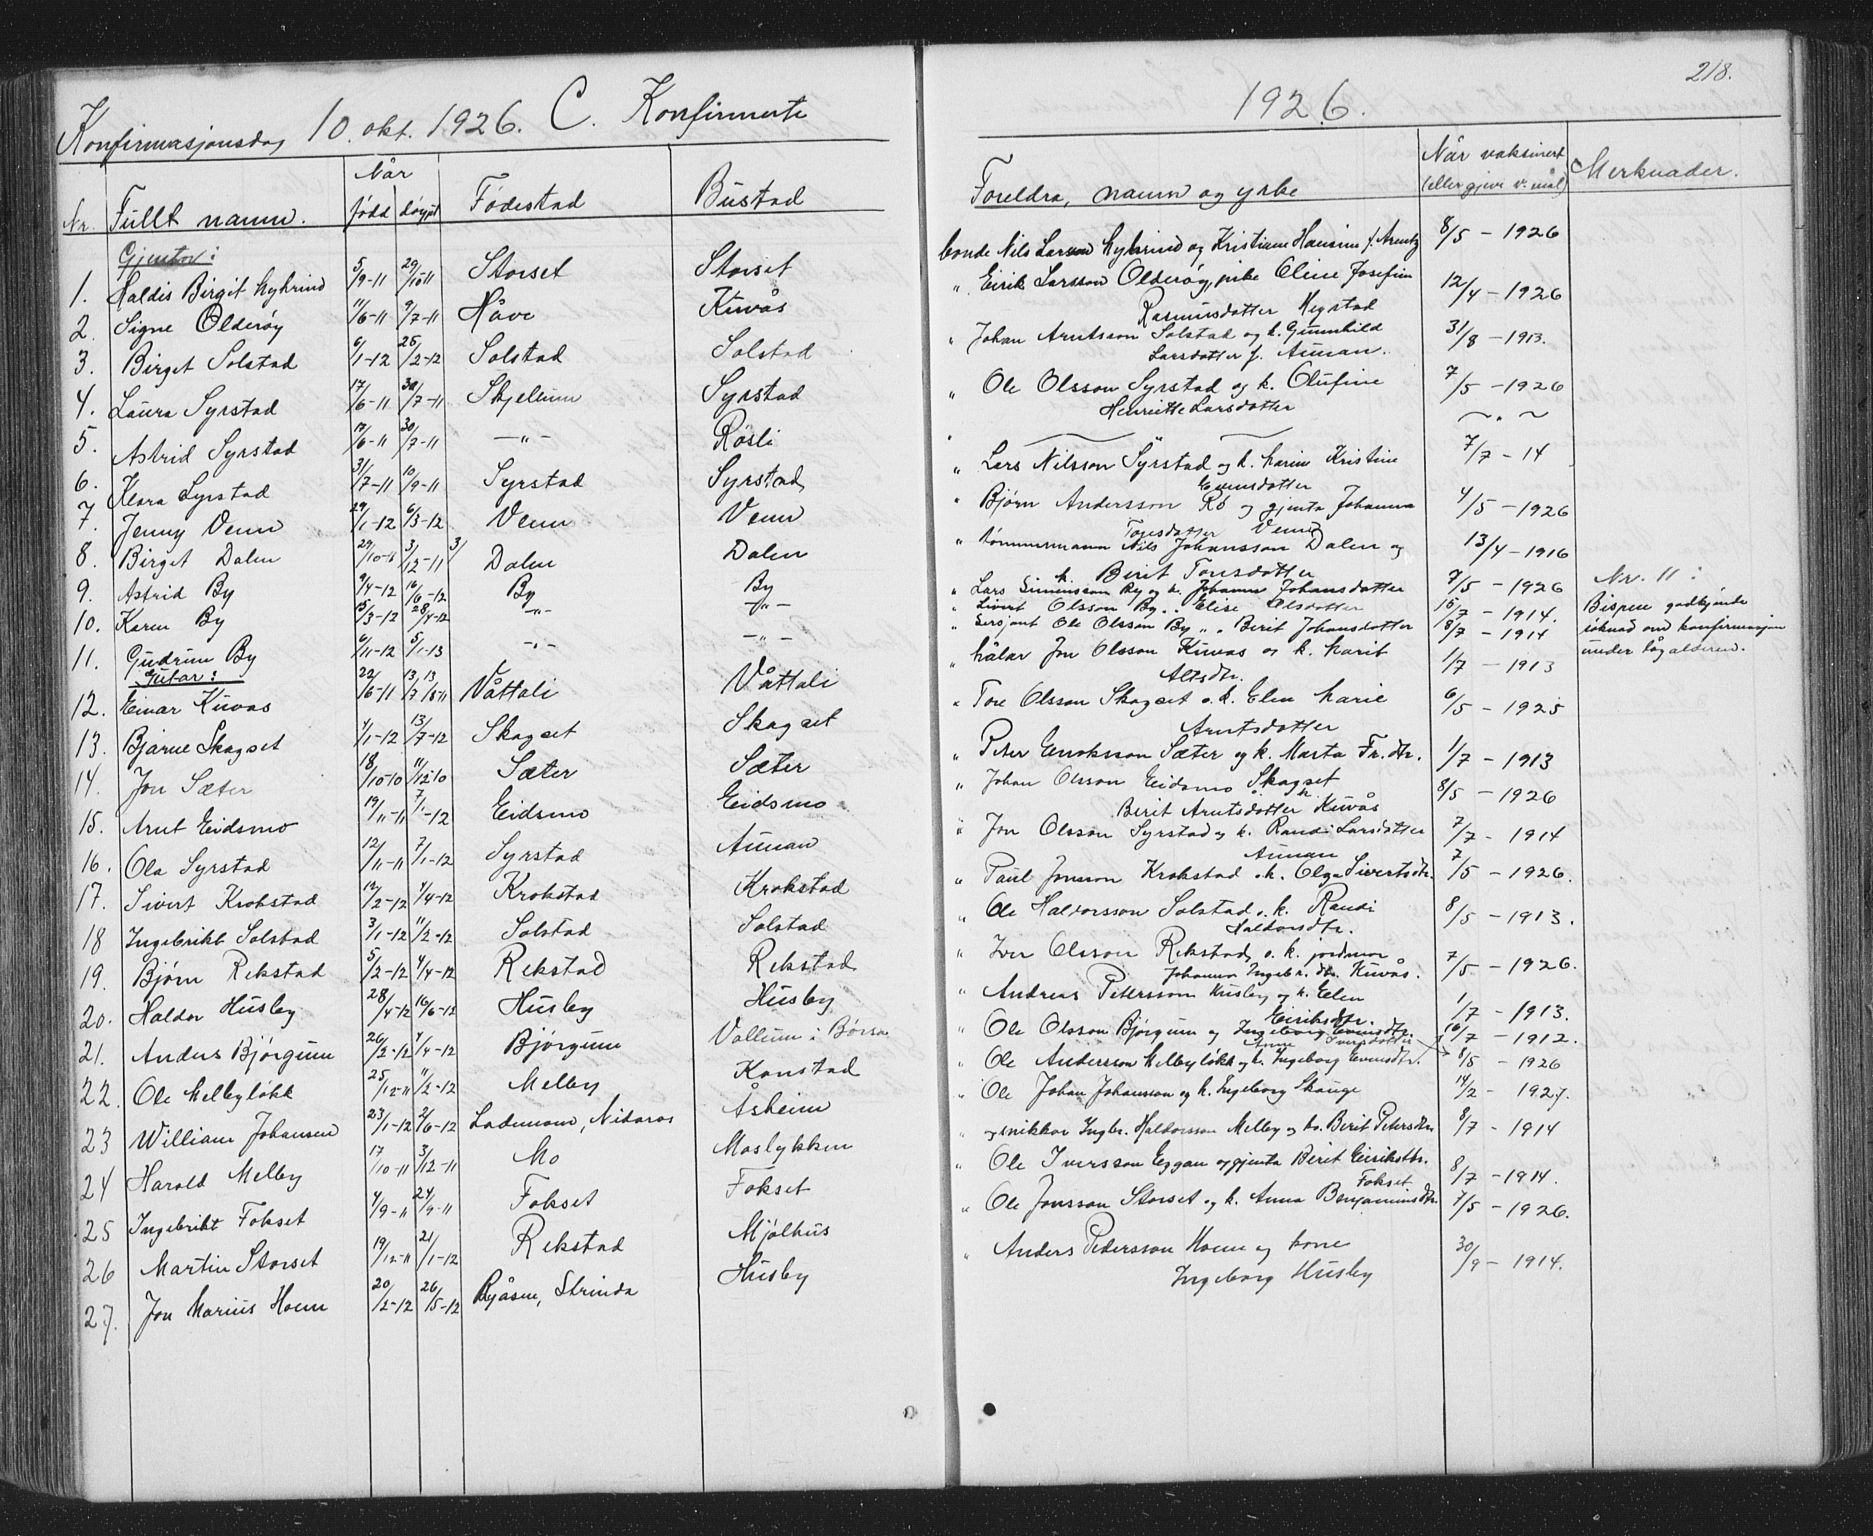 Konfirmasjonsdag 10. okt. 1926. C. Konfirmerte
Nr. Fullt namn. Når født døypt Fødestad Bustad
Gjentor:
1. Haldis Birgit Myhrind 5/9-11 29/10-11 Storset Storset
2. Signe Olderøy 11/6-11 9/7-11 Håve Kuvås
3. Birget Solstad 6/1-12 25/2-12 Solstad Solstad
4. Laura Syrstad 17/6-11 30/7-11 Skjellum Syrstad
5. Astrid Syrstad 17/6-11 30/7-11 —"— Røsli
6. Klara Syrstad 31/7-11 10/9-11 Syrstad Syrstad
7. Jenny Venn 29/1-12 6/3-12 Venn Venn
8. Birget Dalen 29/10-11 3/12-11 3/ Dalen Dalen
9. Astrid By 9/4-12 16/6-12 By By
10. Karen By 15/3-12 28/4-12 —"— —"—
11. Gudrun By 6/11-12 5/1-13 —"— —"—
Gutar:
12. Einar Kuvås 22/6-11 13/7 13/8-11 Våttali Våttali
13. Bjarne Skagset 4/1-12 13/7-12 Skagset Skagset
14. Jon Sæter 18/10-10 11/12-10 Sæter Sæter
15. Arnt Eidsmo 19/11-11 7/1-12 Eidsmo Eidsmo
16. Ola Syrstad 12/11-11 7/1-12 Syrstad Aunan
17. Sivert Krokstad 12/2-12 4/4-12 Krokstad Krokstad
18 Ingebrikt Solstad 3/1-12 11/2-12 Solstad Solstad
19. Bjørn Rekstad 5/2-12 4/4-12 Rekstad Rekstad
20. Haldor Husby 28/4-12 16/6-12 Husby Husby
21. Anders Bjørgum 26/2-12 4/4-12 Bjørgum Vollum i Børsa
22. Ole Melbyløkk 25/12-11 11/2-12 Melby Konstad
23 William Johansen 23/1-12 2/6-12 Lademoen, Nidaros Åsheim
24 Harald Melby 17/10-11 3/12-11 Mo Moslykken
25 Ingebrikt Fokset 4/9-11 24/9-11 Fokset Fokset
26 Martin Storset 19/12-11 21/1-12 Rekstad Mjølhus
27. Jon Marius Hoem 20/2-12 26/5-12 Ryåsen, Strinda Husby
218.
1926.
Foreldra, namn og yrke Når vaksinert (eller gjeve v. mål) Merknader.
bonde Nils Larsen Myhrind og Kristiane Hansine f. Arentz 8/5 - 1926
" Eirik Larsson Olderøy, pike Oline Josefine 12/4 - 1926
Rasmusdotter Megstad
" Johan Arntsson Solstad og k. Gunnhild 31/8 - 1913.
Larsdotter f. Aunan.
" Ole Olsson Syrstad og k. Olufine 7/5 - 1926
Henriette Larsdotter
" ~ ~ ~ " ~
" Lars Nilsson Syrstad og k. Marie Kristine 7/7 - 14
Evensdotter
" Bjørn Andersson Rø og gjenta Johanna 4/5 - 1926
Toresdotter Venn
" tømmermann Nils Johansson Dalen og 13/4 - 1916
k. Berit Toresdotter
" Lars Simensson By og k. Johanna Johansdotter 7/5 - 1926
" Sivert Olsson By " " Elise Olsdotter 16/7 - 1914.
" Sersjant Ole Olsson By " " Berit Johansdotter 8/7 - 1914
Nr. 11:
Bispen godkjende
søknad om konfirmasjon
under lågalderen.
" målar Jon Olsson Kuvås og k. Marit 1/7 - 1913
" Tore Olsson Skagset o. k. Elen Marie 6/5 - 1925
Arntsdotter
" Peter Eriksson Sæter og k. Marta Fr.dtr. 1/7 - 1913
Skagset
" Johan Olsson Eidsmo o. k. 8/5 - 1926
Berit Arntsdotter Kuvås
" Jon Olsson Syrstad og k. Randi Larsdotter 7/7 - 1914
Aunan
" Paul Jonsson Krokstad o. k. Olga Sivertsdtr. 7/5 - 1926.
" Ole Haldorsson Solstad o. k. Randi 8/5 - 1913.
Haldorsdtr.
" Iver Olsson Rekstad, o. k. jordmor 7/5 - 1926.
Johanna Ingebr. dtr. Kuvås.
" Andreas Petersson Husby og k. Elen 1/7 - 1913.
Eiriksdtr.
" Ole Olsson Bjørgum og Ingeborg Evensdtr. 16/7 - 1912.
Anne Iversdotter
" Ole Andersson Melbyløkk og k. Ingeborg Evensdtr. 8/5 - 1926
" Ole Johan Johansson og k. Ingeborg Skauge 14/2 - 1927.
" og snikkar Ingbr. Haldorsson Melby og ko. Berit Petersdtr. 8/7 - 1914
" Ole Iversson Eggan og gjenta Berit Eiriksdtr. 8/7 - 1914.
Fokset
" Ole Jonsson Storset og k. Anna Benjaminsdtr. 7/5 - 1926.
" Anders Pedersson Hoem og kone 30/9 - 1914.
Ingeborg Husby